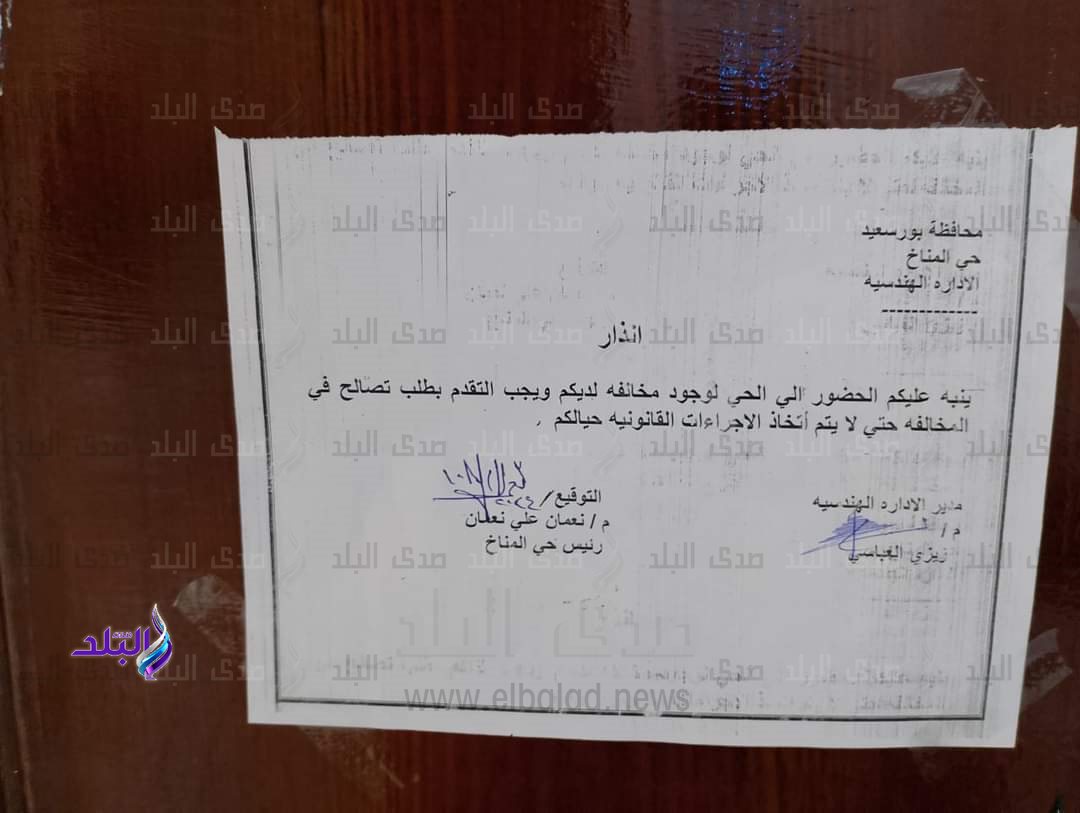 محافظة بورسعيد
حي المناخ
الاداره الهندسيه
-------------
انذار
ينبه عليكم الحضور الي الحي لوجود مخالفه لديكم ويجب التقدم بطلب تصالح في
المخالفه حتي لا يتم أتخاذ الاجراءات القانونيه حيالكم .
مدير الاداره الهندسيه
م /
زيزي العباسي
التوقيع /
٢٠٢٤
م / نعمان علي نعمان
رئيس حي المناخ
صدى البلد
البلد
www.elbalad.news